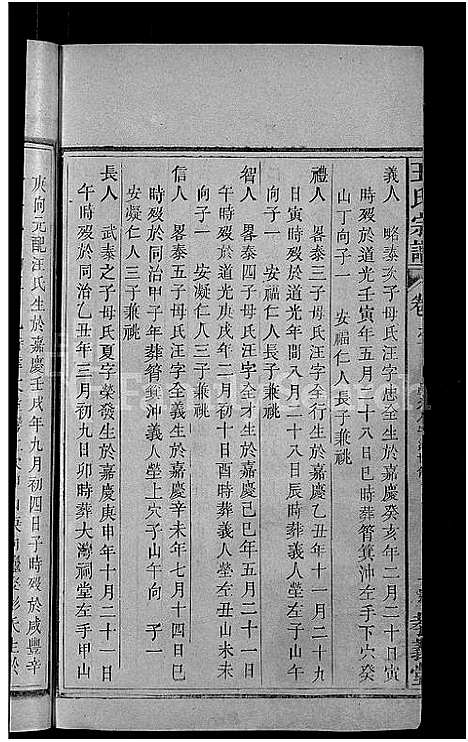 王氏宗譜 卷 孝義堂
義人 略泰次子母氏汪字忠全生於嘉慶癸亥年二月二十日寅
時歿於道光壬寅年五月二十八日巳時葬筲箕沖左手下穴癸
山丁向子一 安福仁人長子兼祧
禮人 畧泰三子母氏汪字全行生於嘉慶乙丑年十一月二十九
日寅時歿於道光年間八月二十八日辰時葬義人塋左子山午
向子一 安福仁人長子兼祧
智人 畧泰四子母氏汪字全才生於嘉慶己巳年五月二十一
時歿於道光庚戌年二月初十日酉時葬義人塋左丑山未
向子一 安凝仁人三子兼祧
信人 畧泰五子母氏汪字全義生於嘉慶辛未年七月十四日巳
時歿於同治甲子年葬筲箕沖義人塋上穴子山午向 子一
安凝仁人三子兼祧
長人 武泰之子母氏夏字榮發生於嘉慶庚申年十月二十一日
午時歿於同治乙丑年三月初九日卯時葬大灣祠堂左手甲山
庚向元配汪氏生於嘉慶壬戌年九月初四日子時歿於咸豐辛